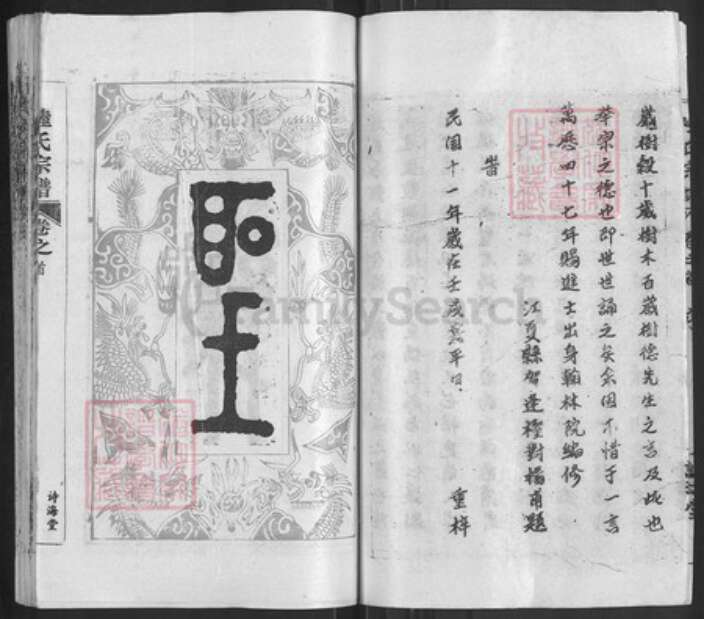 歲樹穀十歲樹木百歲樹德先生之言及此也
萃宗之德也即世世誦之矣余因不惜于一言
萬歷四十七年賜進士出身翰林院編修
江夏縣賀逢
對揚甫題
旹
民國十一年歲在壬戌
平月
重梓
聖
氏宗譜
卷之首
诗海堂
FamilySearch